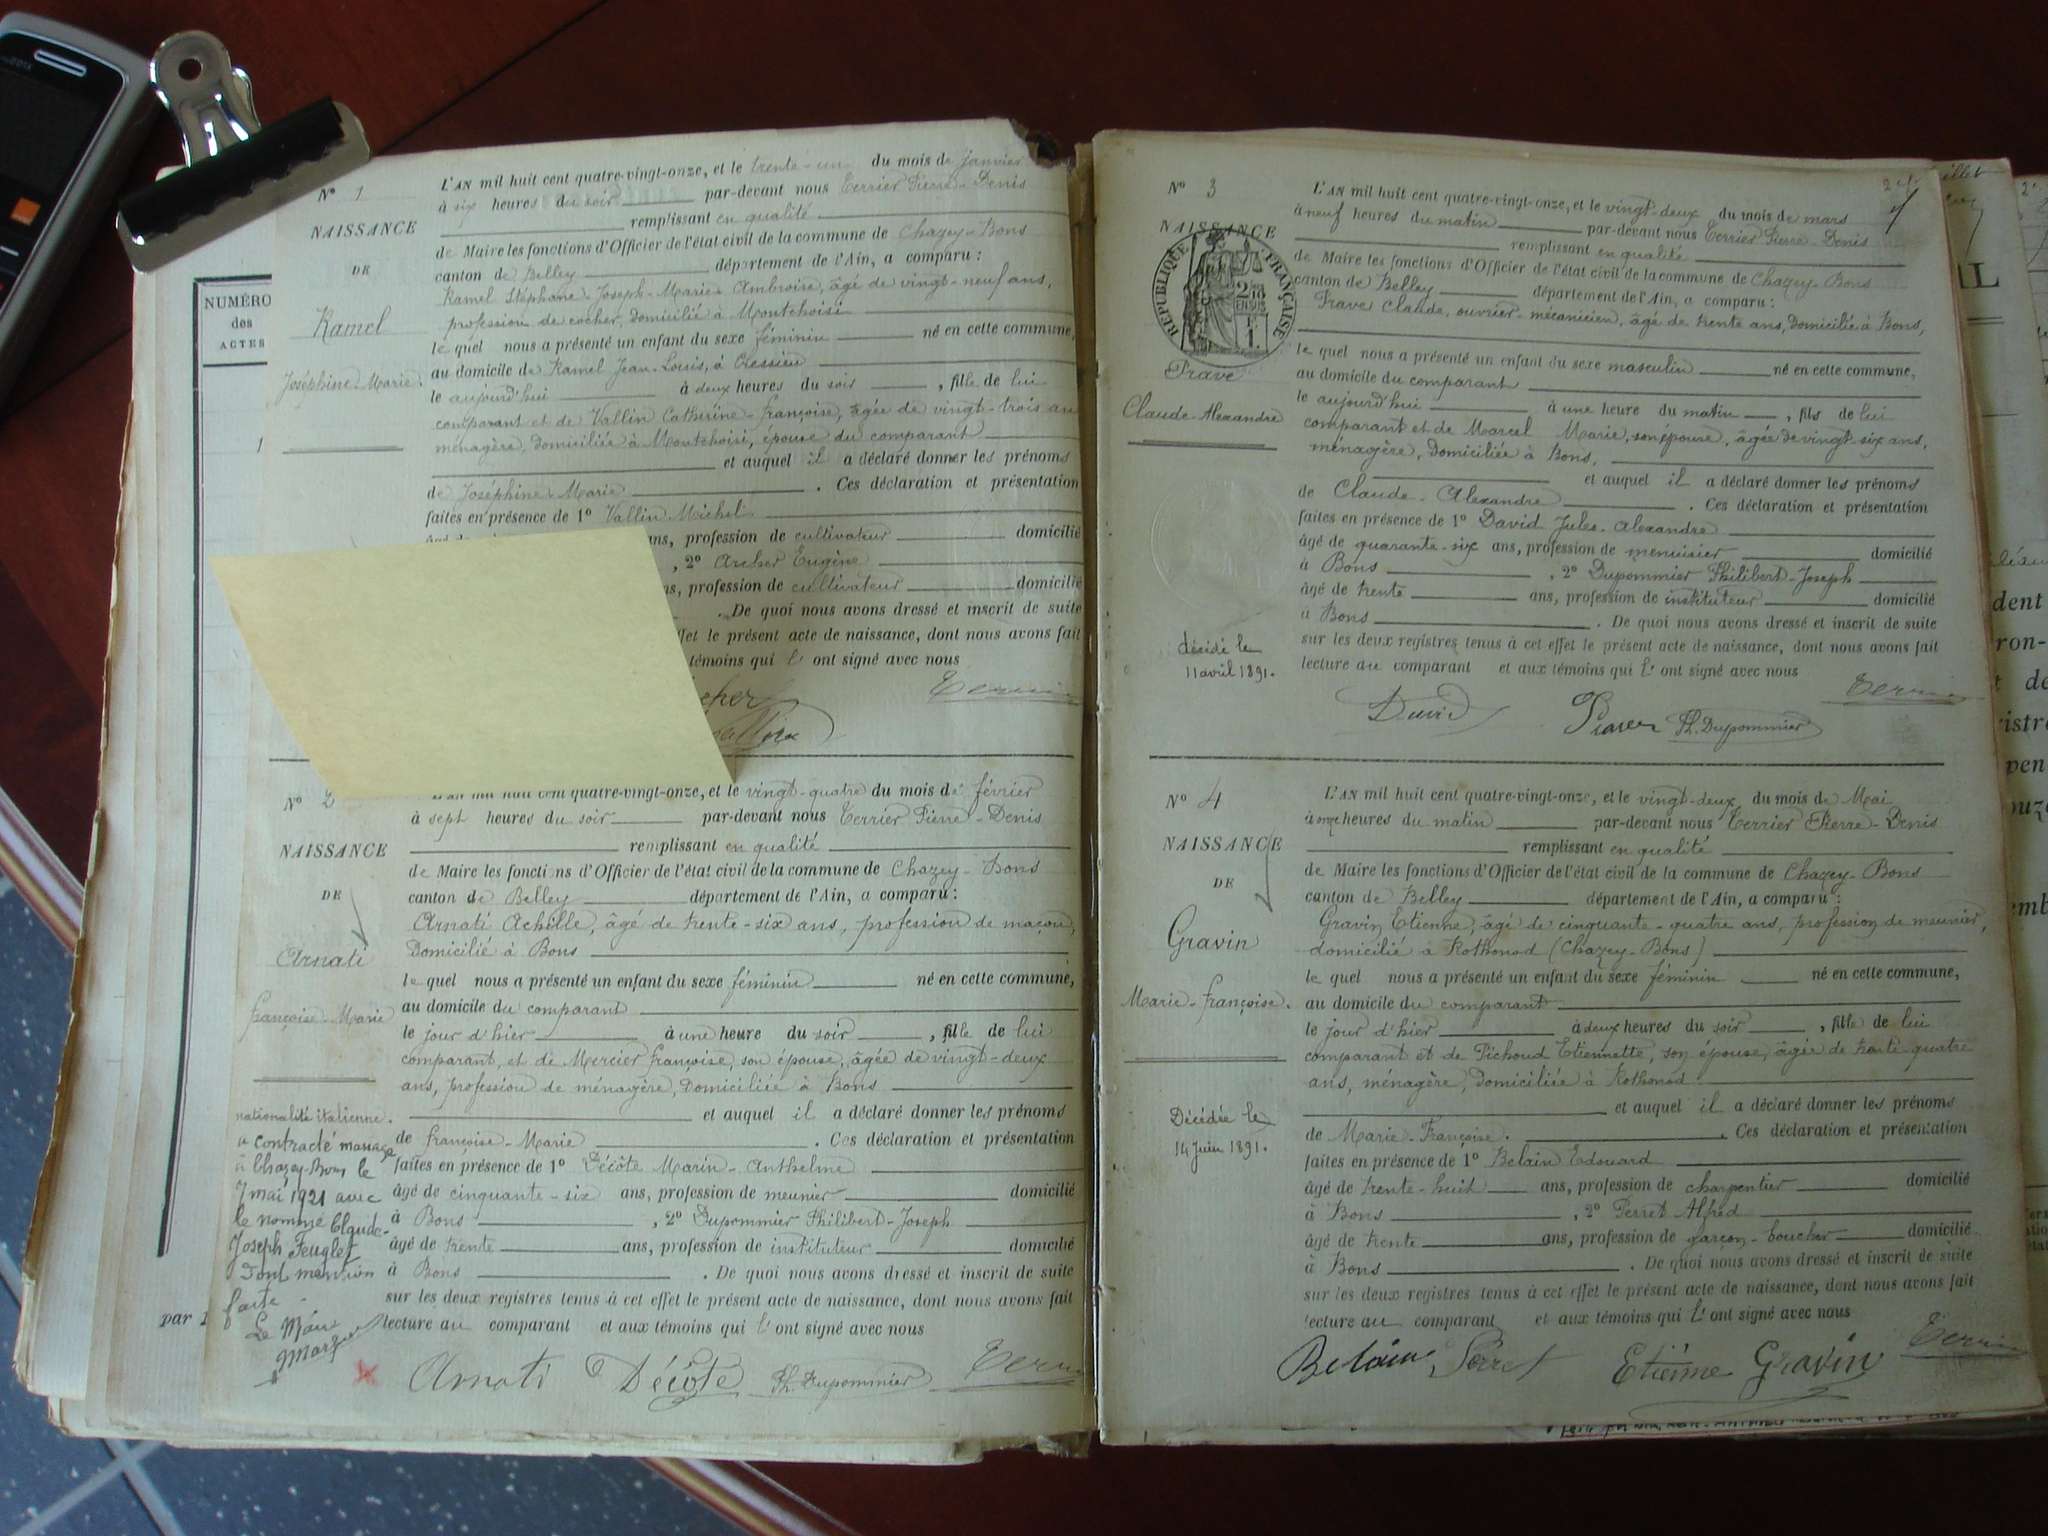 NUMÉRO
des
ACTES
1
par 1
Nº 1
NAISSANCE
DE
Ramel
Joséphine-Marie.
L'AN mil huit cent quatre-vingt-onze, et le trente-un du mois de janvier
à six heures du soir par-devant nous Terrier Pierre-Denis
remplissant en qualité
de Maire les fonctions d'Officier de l'état civil de la commune de Chazey-Bons
canton de Belley département de l'Ain, a comparu :
Ramel Stéphane-Joseph-Marie-Ambroise, âgé de vingt-neuf ans,
profession de cocher, domicilié à Montchoisi
le quel nous a présenté un enfant du sexe féminin né en cette commune,
au domicile de Ramel Jean-Louis, à Cressieu
le aujourd'hui à deux heures du soir , fille de lui
comparant et de Vallin Catherine-Françoise, âgée de vingt-trois ans
ménagère, domiciliée à Montchoisi, épouse du comparant
et auquel il a déclaré donner les prénoms
de Joséphine-Marie . Ces déclaration et présentation
faites en présence de 1º Vallin Michel
ans, profession de cultivateur domicilié
, 2º Archer Eugène
ns, profession de cultivateur domicilié
. De quoi nous avons dressé et inscrit de suite
ffet le présent acte de naissance, dont nous avons fait
témoins qui l' ont signé avec nous
Nº 2
NAISSANCE
DE
Arnati
Françoise-Marie
nationalité italienne.
a contracté mariage
à Chazey-Bons le
7 mai 1921 avec
le nommé Claude-
Joseph Feuglet
Dont mention
faite
Le Maire
L'AN mil huit cent quatre-vingt-onze, et le vingt-quatre du mois de février
à sept heures du soir par-devant nous Terrier Pierre-Denis
remplissant en qualité
de Maire les fonctions d'Officier de l'état civil de la commune de Chazey-Bons
canton de Belley département de l'Ain, a comparu :
Arnati Achille, âgé de trente-six ans, profession de maçon,
Domicilié à Bons
le quel nous a présenté un enfant du sexe féminin né en cette commune,
au domicile du comparant
le jour d'hier à une heure du soir , fille de lui
comparant, et de Mercier Françoise, son épouse, âgée de vingt-deux
ans, profession de ménagère, Domiciliée à Bons
et auquel il a déclaré donner les prénoms
de Françoise-Marie . Ces déclaration et présentation
faites en présence de 1º Décôte Marin-Anthelme
âgé de cinquante-six ans, profession de meunier domicilié
à Bons , 2º Dupommier Philibert-Joseph
âgé de trente ans, profession de instituteur domicilié
à Bons . De quoi nous avons dressé et inscrit de suite
sur les deux registres tenus à cet effet le présent acte de naissance, dont nous avons fait
lecture au comparant et aux témoins qui l' ont signé avec nous
Arnati Décôte Ph. Dupommier
Nº 3
NAISSANCE
RÉPUBLIQUE FRANÇAISE
2/10
EN SUS
1
Trave
Claude-Alexandre
décédé le
11 avril 1891.
L'AN mil huit cent quatre-vingt-onze, et le vingt-deux du mois de mars
à neuf heures du matin par-devant nous Terrier Pierre-Denis
remplissant en qualité
de Maire les fonctions d'Officier de l'état civil de la commune de Chazey-Bons
canton de Belley département de l'Ain, a comparu :
Trave Claude, ouvrier-mécanicien, âgé de trente ans, domicilié à Bons,
le quel nous a présenté un enfant du sexe masculin né en cette commune,
au domicile du comparant
le aujourd'hui à une heure du matin , fils de lui
comparant et de Marcel Marie, son épouse, âgée de vingt-six ans,
ménagère, domiciliée à Bons,
et auquel il a déclaré donner les prénoms
de Claude-Alexandre . Ces déclaration et présentation
faites en présence de 1º David Jules-Alexandre
âgé de quarante-six ans, profession de menuisier domicilié
à Bons , 2º Dupommier Philibert-Joseph
âgé de trente ans, profession de instituteur domicilié
à Bons . De quoi nous avons dressé et inscrit de suite
sur les deux registres tenus à cet effet le présent acte de naissance, dont nous avons fait
lecture au comparant et aux témoins qui l' ont signé avec nous
David Ph. Dupommier
Nº 4
NAISSANCE
DE
Gravin
Marie-Françoise.
Décédée le
14 Juin 1891.
L'AN mil huit cent quatre-vingt-onze, et le vingt-deux du mois de Mai
à onze heures du matin par-devant nous Terrier Pierre-Denis
remplissant en qualité
de Maire les fonctions d'Officier de l'état civil de la commune de Chazey-Bons
canton de Belley département de l'Ain, a comparu :
Gravin Etienne, âgé de cinquante-quatre ans, profession de meunier,
domicilié à Rothonod (Chazey-Bons)
le quel nous a présenté un enfant du sexe féminin né en cette commune,
au domicile du comparant
le jour d'hier à deux heures du soir , fille de lui
comparant et de Pichoud Etiennette, son épouse, âgée de trente-quatre
ans, ménagère, domiciliée à Rothonod
et auquel il a déclaré donner les prénoms
de Marie-Françoise. . Ces déclaration et présentation
faites en présence de 1º Belain Edouard
âgé de trente-huit ans, profession de charpentier domicilié
à Bons , 2º Perret Alfred
âgé de trente ans, profession de garçon-boucher domicilié
à Bons . De quoi nous avons dressé et inscrit de suite
sur les deux registres tenus à cet effet le présent acte de naissance, dont nous avons fait
lecture au comparant et aux témoins qui l' ont signé avec nous
Belain Perret Etienne Gravin